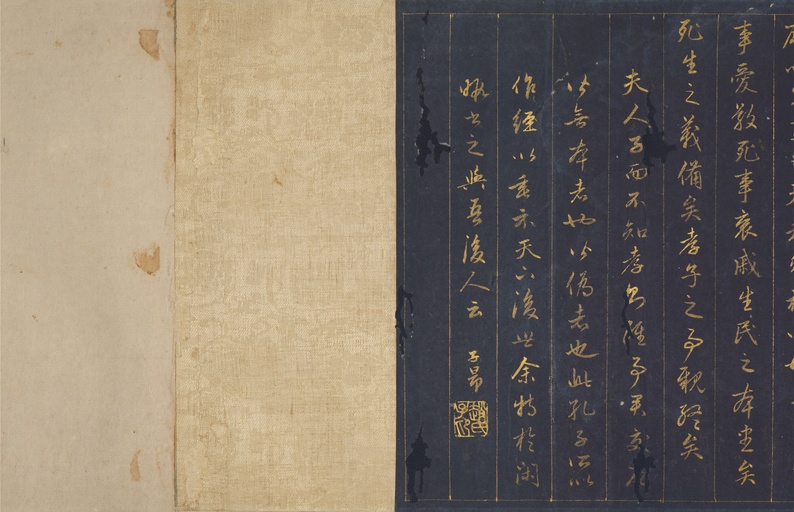 事愛敬死事哀慼生民之本盡矣
死生之義備矣孝子之事親終矣
夫人子而不知孝雖事君交
皆無本者也皆偽者也此孔子所以
作經以垂示天下後世余特於閑
暇書之與吾後人云 子昂
趙氏子昂